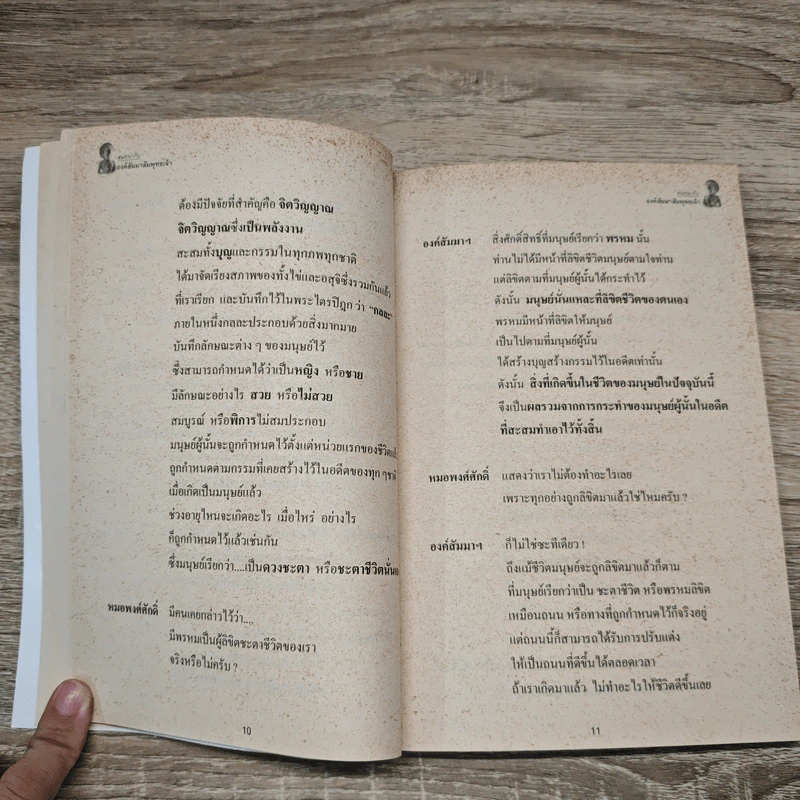 สนทนากับ
องค์สัมมาสัมพุทธเจ้า
ต้องมีปัจจัยที่สำคัญคือ จิตวิญญาณ
จิตวิญญาณซึ่งเป็นพลังงาน
สะสมทั้งบุญและกรรมในทุกภพทุกชาติ
ได้มาจัดเรียงสภาพของทั้งไข่และอสุจิซึ่งรวมกันแล้ว
ที่เราเรียก และบันทึกไว้ในพระไตรปิฎก ว่า “กลละ”
ภายในหนึ่งกลละประกอบด้วยสิ่งมากมาย
บันทึกลักษณะต่าง ๆ ของมนุษย์ไว้
ซึ่งสามารถกำหนดได้ว่าเป็นหญิง หรือชาย
มีลักษณะอย่างไร สวย หรือไม่สวย
สมบูรณ์ หรือพิการไม่สมประกอบ
มนุษย์ผู้นั้นจะถูกกำหนดไว้ตั้งแต่หน่วยแรกของชีวิต
ถูกกำหนดตามกรรมที่เคยสร้างไว้ในอดีตของทุก ๆ ชาติ
เมื่อเกิดเป็นมนุษย์แล้ว
ช่วงอายุไหนจะเกิดอะไร เมื่อไหร่ อย่างไร
ก็ถูกกำหนดไว้แล้วเช่นกัน
ซึ่งมนุษย์เรียกว่า....เป็นดวงชะตา หรือชะตาชีวิตนั่น
หมอพงศ์ศักดิ์ มีคนเคยกล่าวไว้ว่า....
มีพรหมเป็นผู้ลิขิตชะตาชีวิตของเรา
จริงหรือไม่ครับ ?
10
สนทนากับ
องค์สัมมาสัมพุทธเจ้า
องค์สัมมาฯ สิ่งศักดิ์สิทธิ์ที่มนุษย์เรียกว่า พรหม นั้น
ท่านไม่ได้มีหน้าที่ลิขิตชีวิตมนุษย์ตามใจท่าน
แต่ลิขิตตามที่มนุษย์ผู้นั้นได้กระทำไว้
ดังนั้น มนุษย์นั่นแหละที่ลิขิตชีวิตของตนเอง
พรหมมีหน้าที่ลิขิตให้มนุษย์
เป็นไปตามที่มนุษย์ผู้นั้น
ได้สร้างบุญสร้างกรรมไว้ในอดีตเท่านั้น
ดังนั้น สิ่งที่เกิดขึ้นในชีวิตของมนุษย์ในปัจจุบันนี้
จึงเป็นผลรวมจากการกระทำของมนุษย์ผู้นั้นในอดีต
ที่สะสมทำเอาไว้ทั้งสิ้น
หมอพงศ์ศักดิ์ แสดงว่าเราไม่ต้องทำอะไรเลย
เพราะทุกอย่างถูกลิขิตมาแล้วใช่ไหมครับ ?
องค์สัมมาฯ ก็ไม่ใช่ซะทีเดียว !
ถึงแม้ชีวิตมนุษย์จะถูกลิขิตมาแล้วก็ตาม
ที่มนุษย์เรียกว่าเป็น ชะตาชีวิต หรือพรหมลิขิต
เหมือนถนน หรือทางที่ถูกกำหนดไว้ก็จริงอยู่
แต่ถนนนี้ก็สามารถได้รับการปรับแต่ง
ให้เป็นถนนที่ดีขึ้นได้ตลอดเวลา
ถ้าเราเกิดมาแล้ว ไม่ทำอะไรให้ชีวิตดีขึ้นเลย
11